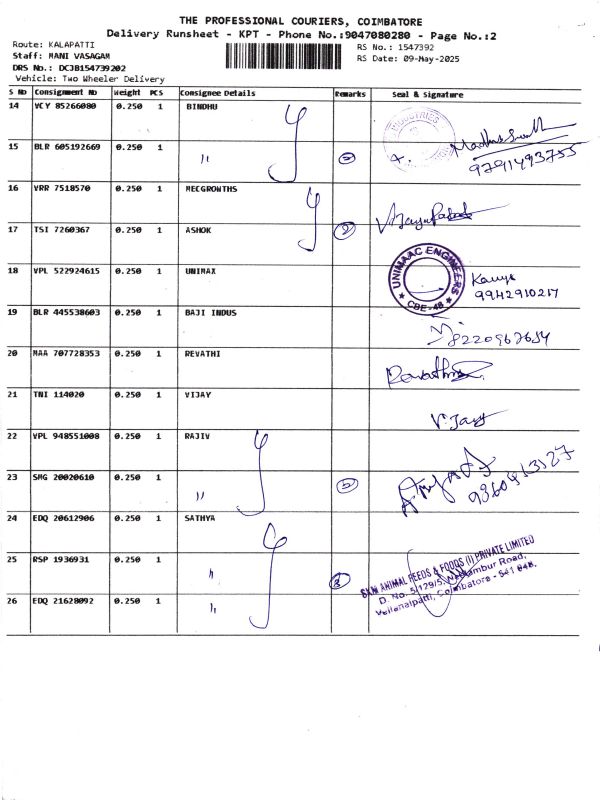 THE PROFESSIONAL COURIERS, COIMBATORE
Delivery Runsheet - KPT - Phone No.:9047080280 - Page No.:2
Route: KALAPATTI
Staff: MANI VASAGAM
DRS No.: DCJB154739202
Vehicle: Two Wheeler Delivery
RS No.: 1547392
RS Date: 09-May-2025
S No Consignment No Weight PCS Consignee Details Remarks Seal & Signature
14 VCY 85266080 0.250 1 BINDHU
INDUSTRIES
15 BLR 605192669 0.250 1 " 2
9791493755
16 VRR 7518570 0.250 1 MECGROWTHS
17 TSI 7260367 0.250 1 ASHOK 2
18 VPL 522924615 0.250 1 UNIMAX
UNIMAAC ENGINEERS
★ CBE-48 ★
Kavya
9942910217
19 BLR 445538603 0.250 1 BAJI INDUS
8220967654
20 MAA 707728353 0.250 1 REVATHI
Revathi
21 TNI 114020 0.250 1 VIJAY
Vijay
22 VPL 948551008 0.250 1 RAJIV
23 SMG 20020610 0.250 1 " 2
24 EDQ 20612906 0.250 1 SATHYA
25 RSP 1936931 0.250 1 " 3
SKM ANIMAL FEEDS & FOODS (I) PRIVATE LIMITED
D. No. 5/129/5, Neelambur Road,
Vellanaipatti, Coimbatore - 641 048.
26 EDQ 21628092 0.250 1 "